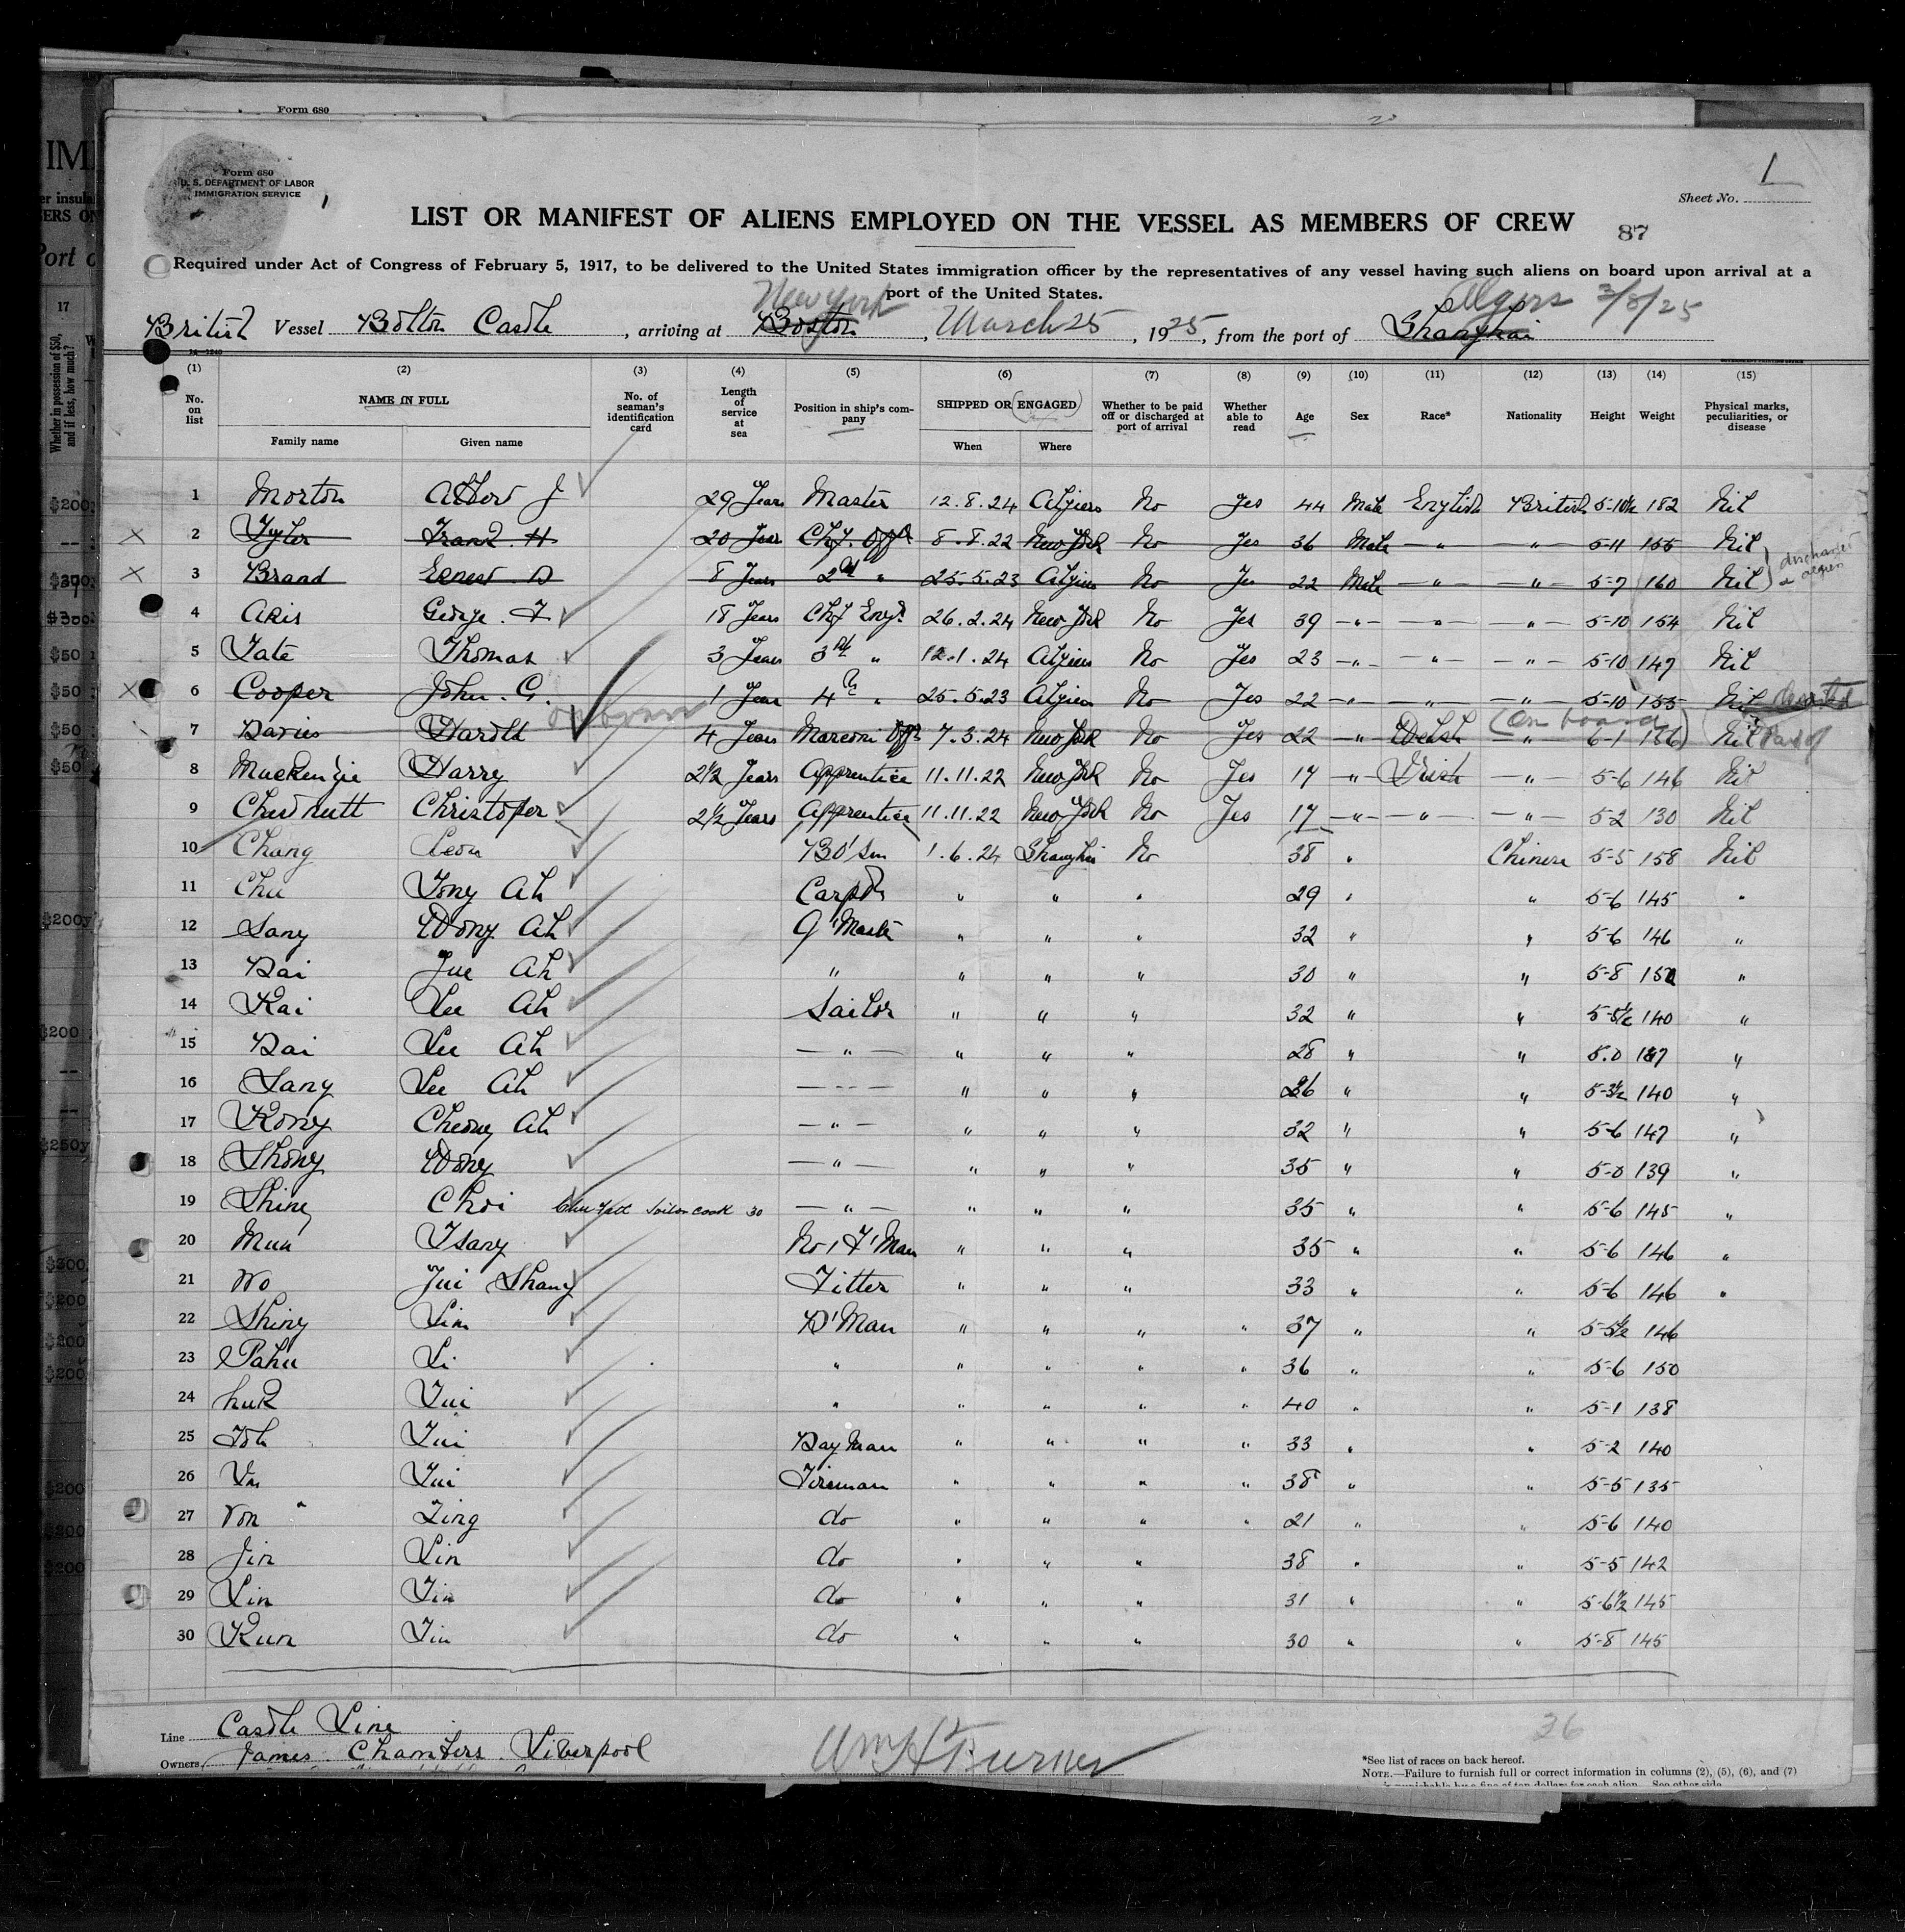 Form 680
Form 680
U. S. DEPARTMENT OF LABOR
IMMIGRATION SERVICE
Sheet No. 1
LIST OR MANIFEST OF ALIENS EMPLOYED ON THE VESSEL AS MEMBERS OF CREW
87
Required under Act of Congress of February 5, 1917, to be delivered to the United States immigration officer by the representatives of any vessel having such aliens on board upon arrival at a
port of the United States.
New York
Algiers 3/8/25
British Vessel Bolton Castle, arriving at Boston, March 25, 1925, from the port of Shanghai
(1) (2) (3) (4) (5) (6) (7) (8) (9) (10) (11) (12) (13) (14) (15)
No. on list NAME IN FULL Family name Given name No. of seaman's identification card Length of service at sea Position in ship's company SHIPPED OR ENGAGED When Where Whether to be paid off or discharged at port of arrival Whether able to read Age Sex Race* Nationality Height Weight Physical marks, peculiarities, or disease
1 Morton J 29 Years Master 12.8.24 Algiers No Yes 44 Male English British 5-10½ 182 Nil
2 Tyler Frank H 20 Year Chf. Offr 8.8.22 New York No Yes 36 Male " " 5-11 155 Nil
3 Brand Ernest D 8 Years 2nd " 25.5.23 Algiers No Yes 22 Male " " 5-7 160 Nil discharged
4 Akis George F 18 Years Chf Engr 26.2.24 New York No Yes 39 " " " 5-10 154 Nil
5 Tate Thomas 3 Years 3rd " 12.1.24 Algiers No Yes 23 " " " 5-10 147 Nil
6 Cooper John G. 1 Year 4th " 25.5.23 Algiers No Yes 22 " " " 5-10 155 Nil deserted
on board (on board)
7 Davies Harold 4 Years Marconi Offr 7.3.24 New York No Yes 22 " Welsh " 6-1 186 Nil
8 Mackenzie Harry 2½ Years Apprentice 11.11.22 New York No Yes 17 " Irish " 5-6 146 Nil
9 Chestnutt Christopher 2½ Years Apprentice 11.11.22 New York No Yes 17 " " " 5-2 130 Nil
10 Chang Leon BO'Sun 1.6.24 Shanghai No 38 " Chinese 5-5 158 Nil
11 Chu Tong Ah Carptr " " " 29 " " 5-6 145 "
12 Sang Wong Ah Q'Master " " " 32 " " 5-6 146 "
13 Dai Jue Ah " " " " 30 " " 5-8 "
14 Kai Lee Ah Sailor " " " 32 " " 140 "
15 Dai Lee Ah " " " " 28 " " 5.0 "
16 Sang Lee Ah " " " " 26 " " 5-3½ 140 "
17 Kong Cheong Ah " " " " 32 " " 5-6 147 "
18 Shong Wong " " " " 35 " " 5-0 139 "
19 Shing Choi Sailor cook 30 " " " " 35 " " 5-6 145 "
20 Mun Tsang No 1 F'Man " " " 35 " " 5-6 146 "
21 Wo Jui Shang Fitter " " " 33 " " 5-6 146 "
22 Shing Lim D'Man " " " " 37 " " 5-5½ 146
23 Pahu Li " " " " " 36 " " 5-6 150
24 Luk Tui " " " " " 40 " " 5-1 138
25 Toh Tui Day Man " " " " 33 " " 5-2 140
26 Tui Fireman " " " " 38 " " 5-5 135
27 Von Ling do " " " " 21 " " 5-6 140
28 Jin Lin do " " " 38 " " 5-5 142
29 Lin Tin do " " " 31 " " 5-6½ 145
30 Kun Tin do " " " 30 " " 5-8 145
Line Castle Line
Owners James Chambers. Liverpool
Wm H Turner
36
*See list of races on back hereof.
NOTE.—Failure to furnish full or correct information in columns (2), (5), (6), and (7)
is punishable by a fine of ten dollars for each alien. See other side.